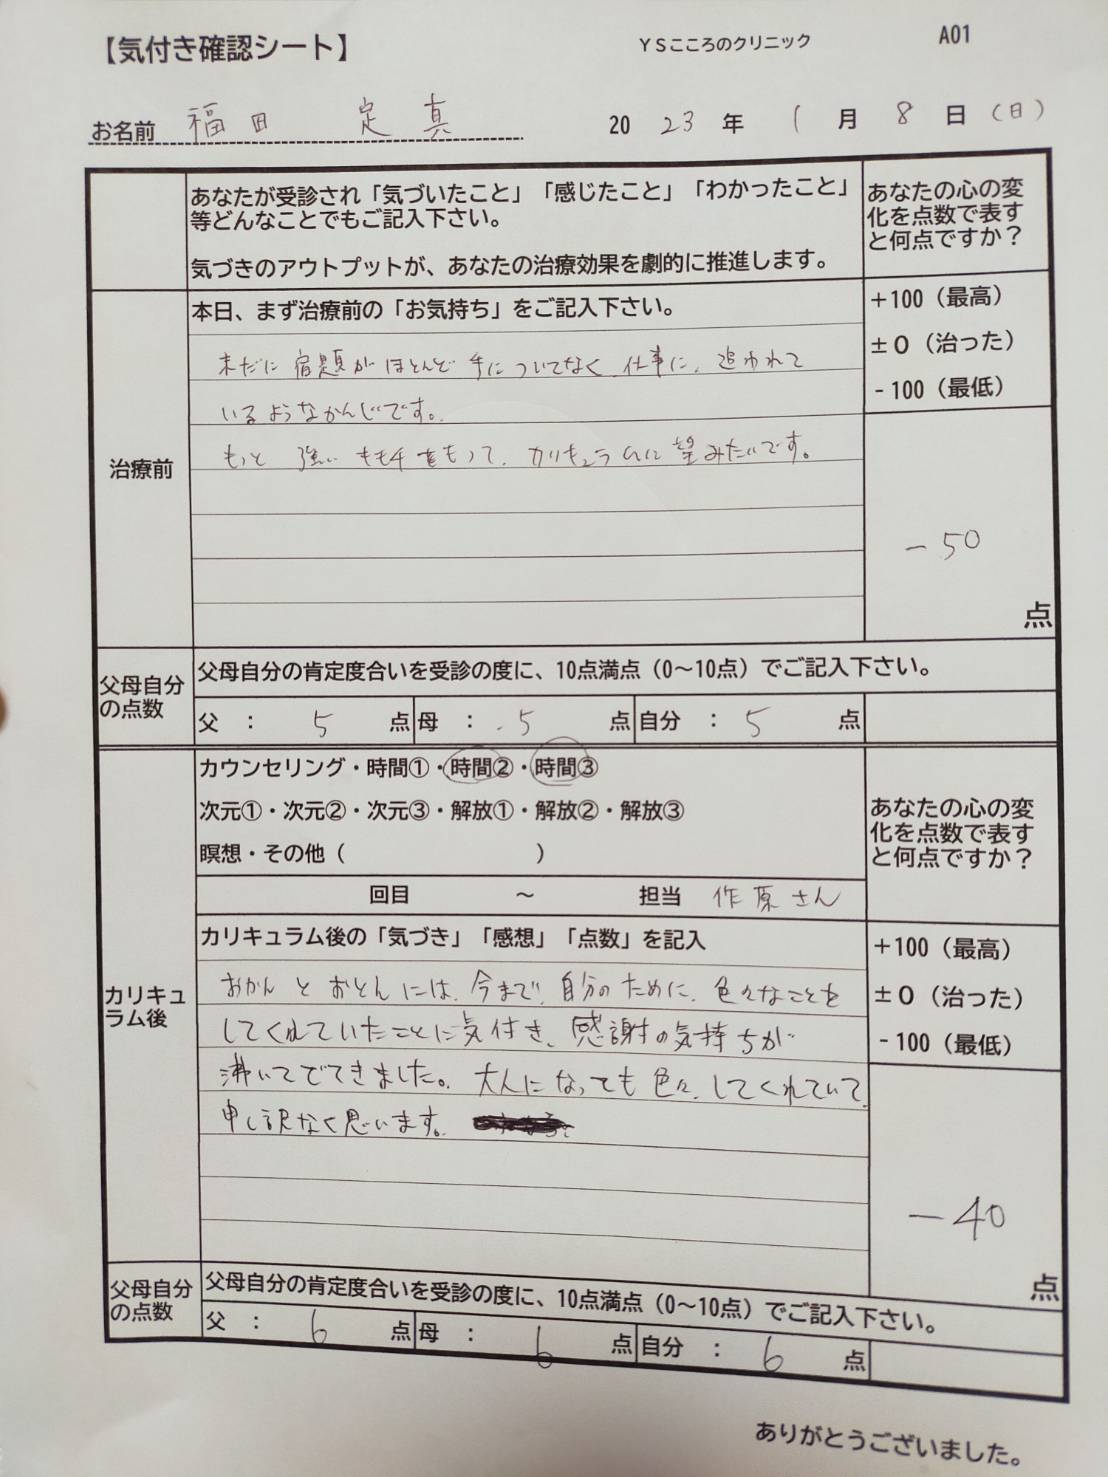 【気付き確認シート】 YSこころのクリニック A01
お名前 福田 定真 2023年1月8日(日)
あなたが受診され「気づいたこと」「感じたこと」「わかったこと」
等どんなことでもご記入下さい。
気づきのアウトプットが、あなたの治療効果を劇的に推進します。
あなたの心の変
化を点数で表す
と何点ですか？
治療前
本日、まず治療前の「お気持ち」をご記入下さい。
未だに宿題がほとんど手についてなく、仕事に、追われて
いるようなかんじです。
もっと強い きもチをもって、カリキュラムに望みたいです。
+100（最高）
±0（治った）
-100（最低）
-50
点
父母自分
の点数
父母自分の肯定度合いを受診の度に、10点満点（0～10点）でご記入下さい。
父 ： 5 点 母 ： 5 点 自分 ： 5 点
カリキュ
ラム後
カウンセリング・時間①・時間②・時間③
次元①・次元②・次元③・解放①・解放②・解放③
瞑想・その他（ ）
回目 ～ 担当 作原さん
あなたの心の変
化を点数で表す
と何点ですか？
カリキュラム後の「気づき」「感想」「点数」を記入
おかんとおとんには、今まで、自分のために、色々なことを
してくれていたことに気付き、感謝の気持ちが
沸いてでてきました。大人になっても色々、してくれていて、
申し訳なく思います。
+100（最高）
±0（治った）
-100（最低）
-40
点
父母自分
の点数
父母自分の肯定度合いを受診の度に、10点満点（0～10点）でご記入下さい。
父 ： 6 点 母 ： 6 点 自分 ： 6 点
ありがとうございました。